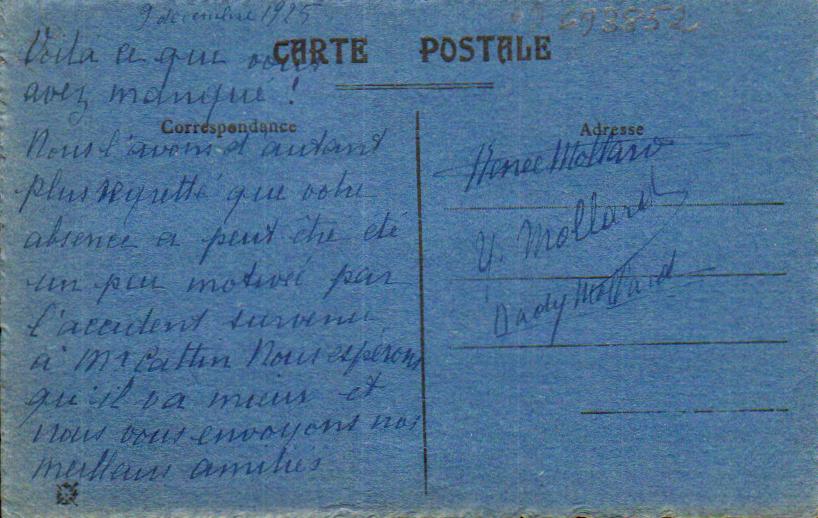 9 décembre 1925
293852
CARTE POSTALE
Voilà ce que vous
avez manqué !
Correspondance
Nous l'avons d'autant
plus regretté que votre
absence a peut être été
un peu motivée par
l'accident survenu
à Mr Cattin Nous espérons
qu'il va mieux et
nous vous envoyons nos
meilleurs amitiés
Adresse
Renée Mollard
Y. Mollard
Dady Mollard